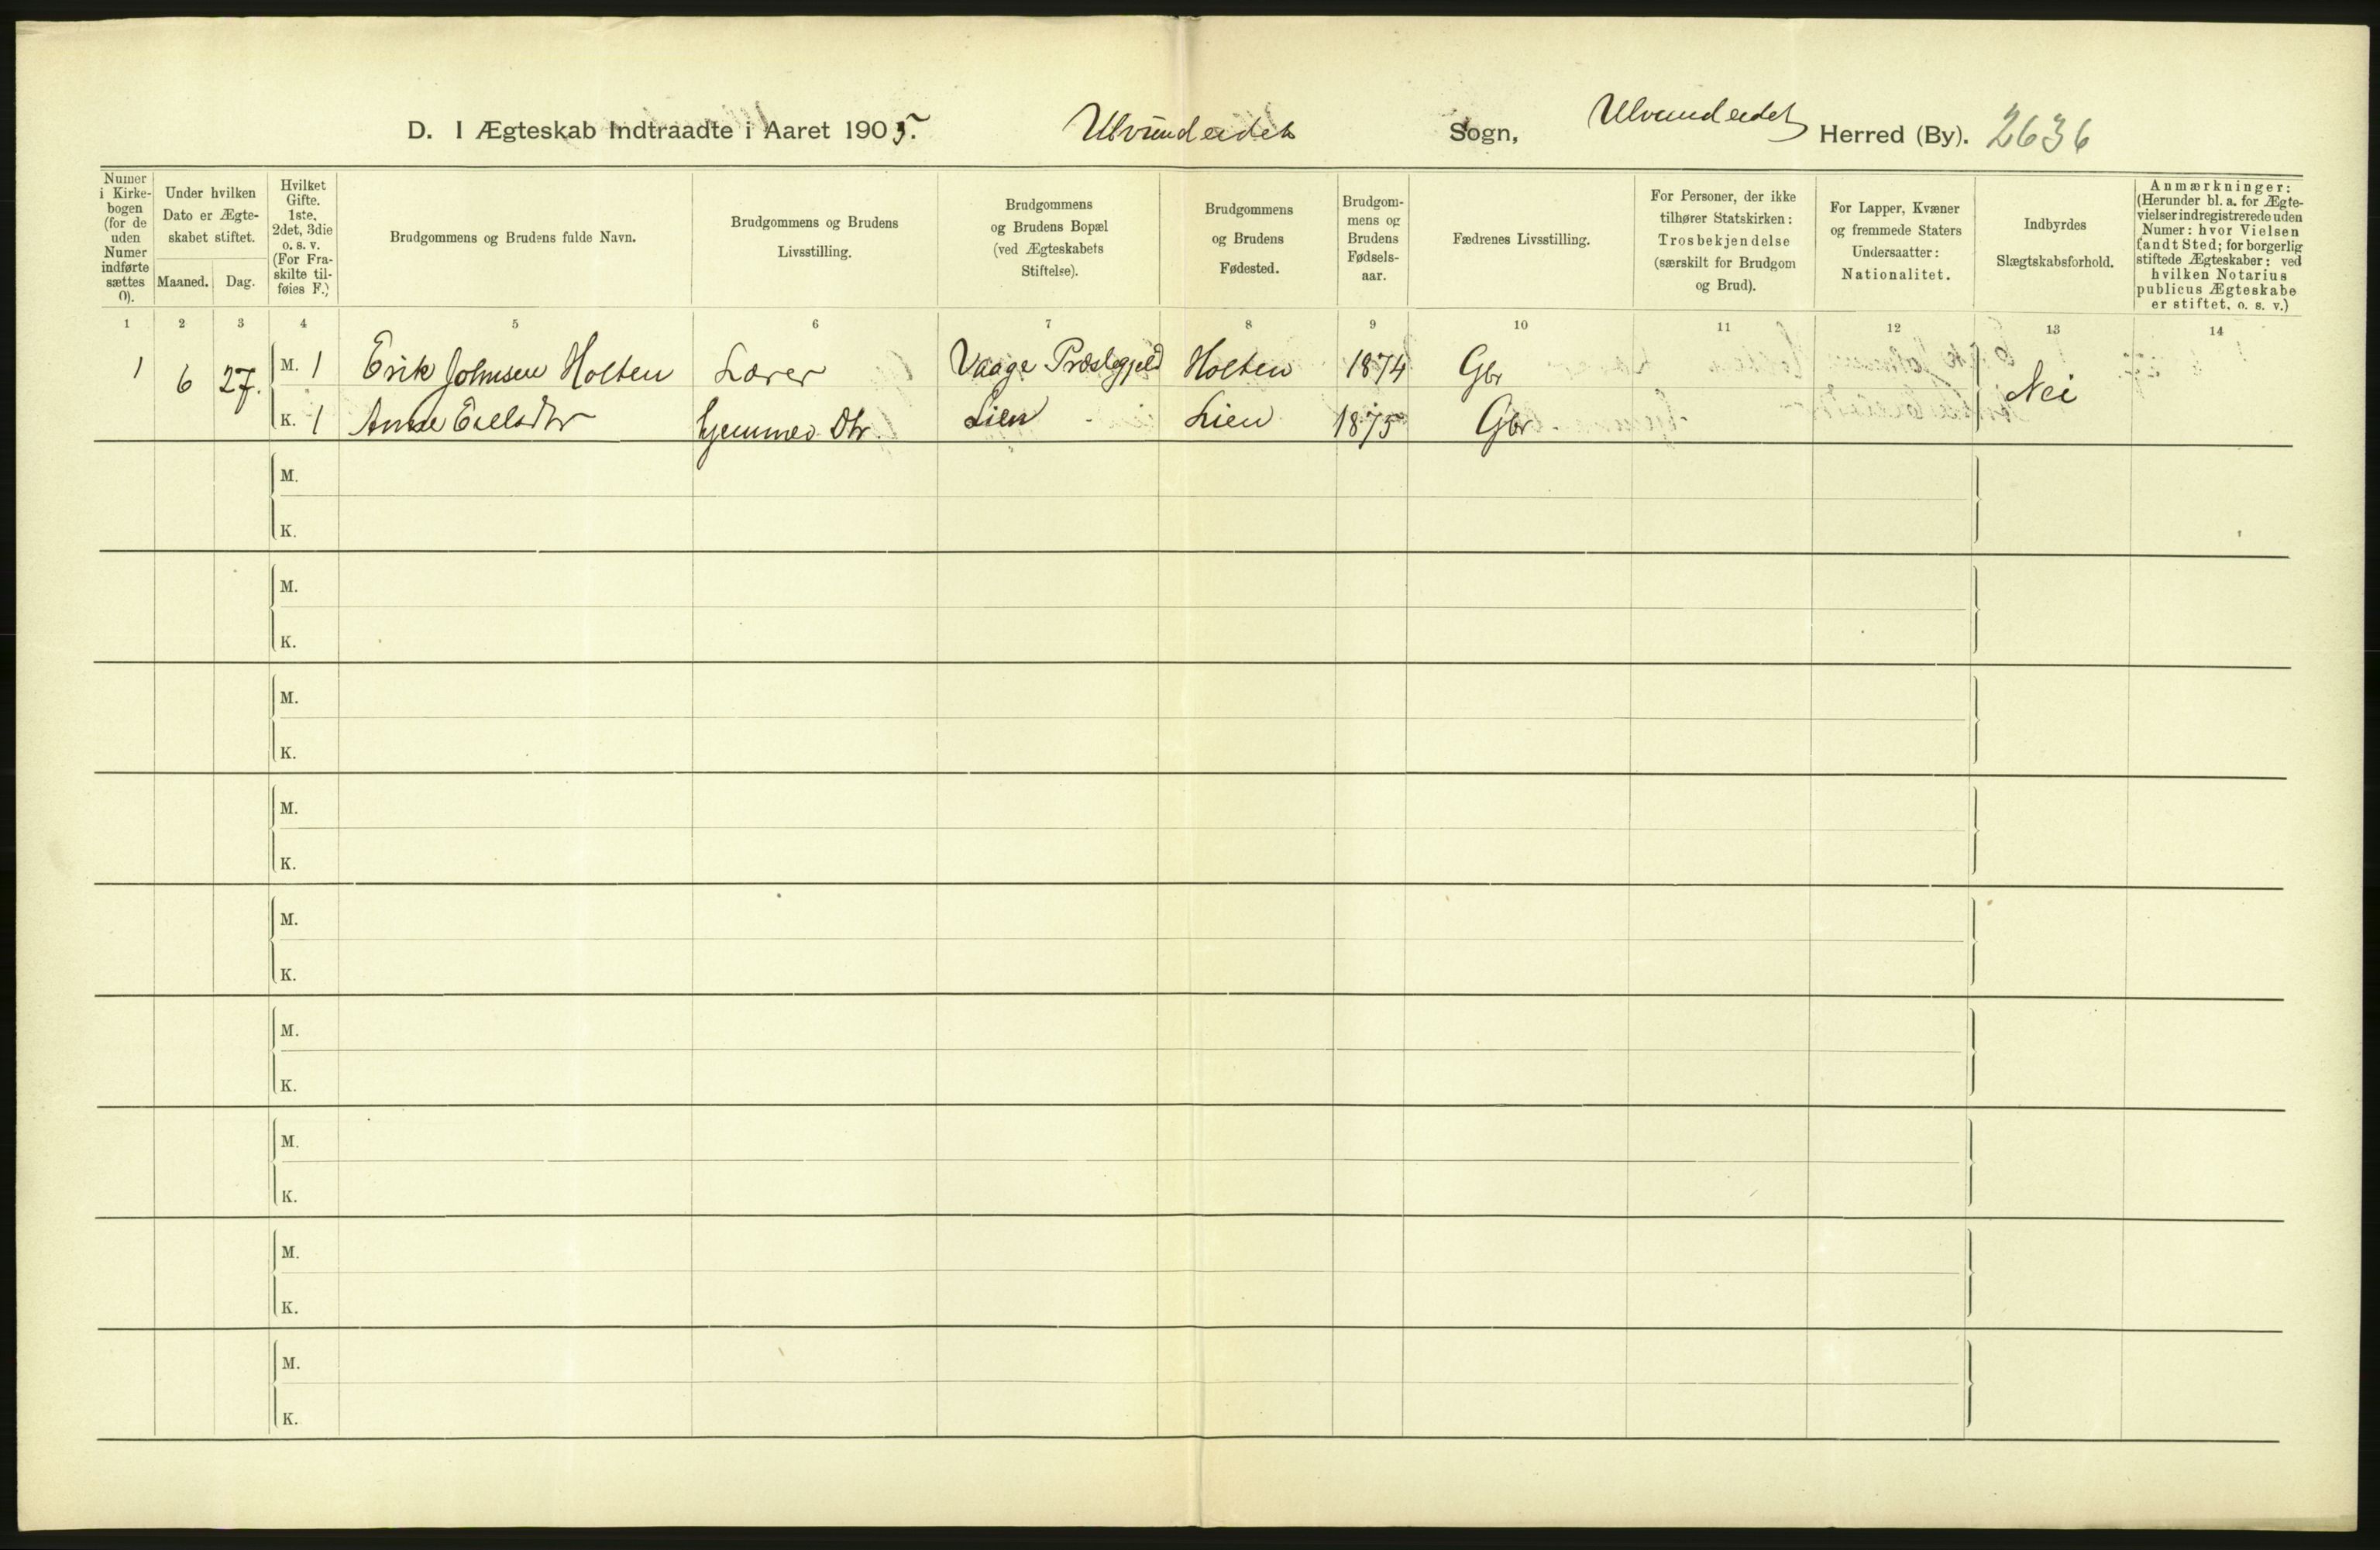 D. I Ægteskab Indtraadte i Aaret 1905. Ulvundeidet Sogn, Ulvundeidet Herred (By). 2636
Numer i Kirkebogen (for de uden Numer indførte sættes 0).
Under hvilken Dato er Ægteskabet stiftet.
Maaned. Dag.
Hvilket Gifte. 1ste, 2det, 3die o. s. v. (For Fraskilte tilføies F.)
Brudgommens og Brudens fulde Navn.
Brudgommens og Brudens Livsstilling.
Brudgommens og Brudens Bopæl (ved Ægteskabets Stiftelse).
Brudgommens og Brudens Fødested.
Brudgommens og Brudens Fødselsaar.
Fædrenes Livsstilling.
For Personer, der ikke tilhører Statskirken: Trosbekjendelse (særskilt for Brudgom og Brud).
For Lapper, Kvæner og fremmede Staters Undersaatter: Nationalitet.
Indbyrdes Slægtskabsforhold.
Anmærkninger: (Herunder bl. a. for Ægtevielser indregistrerede uden Numer: hvor Vielsen fandt Sted; for borgerlig stiftede Ægteskaber: ved hvilken Notarius publicus Ægteskabe er stiftet, o. s. v.)
1 2 3 4 5 6 7 8 9 10 11 12 13 14
1 6 27. M. 1 Erik Johnsen Holten Lærer Vaage Præstegjeld Holten 1874 Gbr Nei
K. 1 Hjemmev. Dtr. Lien Lien 1875 Gbr
M.
K.
M.
K.
M.
K.
M.
K.
M.
K.
M.
K.
M.
K.
M.
K.
M.
K.